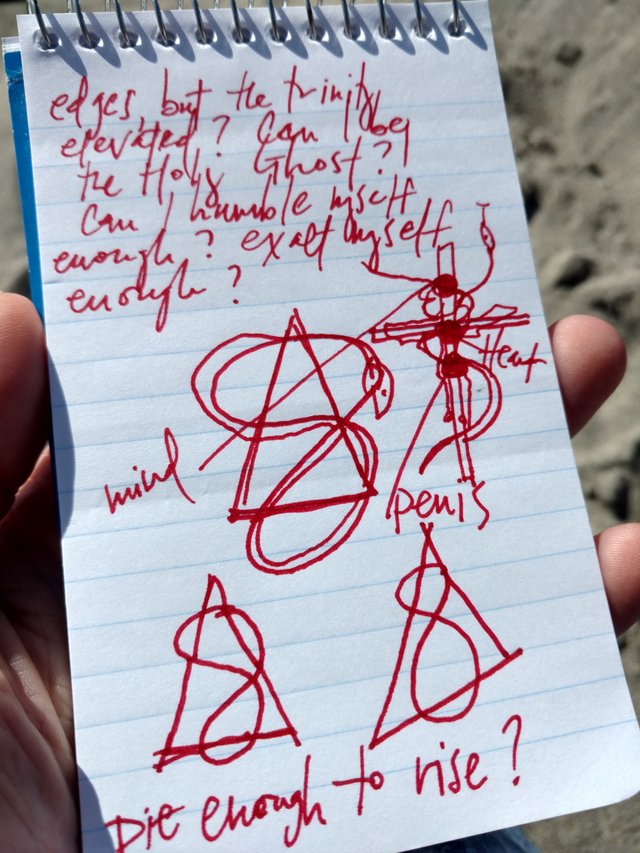 edges, but the trinity
elevated? Can I be
the Holy Ghost?
Can I humble myself
enough? exalt myself
enough?
Heart
mind
penis
Die enough to rise?